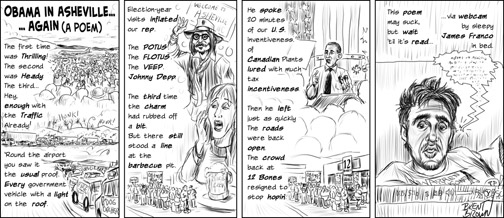 OBAMA IN ASHEVILLE...
... AGAIN (A POEM)
The first time
was Thrilling
The second
was Heady
The third...
Hey,
enough with
the Traffic
Already!
'Round the airport
you saw it
the usual proof.
Every government
vehicle with a light
on the roof.
Election-year
visits inflated
our rep.
The POTUS
The FLOTUS
The VEEP.
Johnny Depp.
The third time
the charm
had rubbed off
a bit.
But there still
stood a line
at the
barbecue pit.
He spoke
20 minutes
of our U.S.
Inventiveness.
of
Canadian Plants
lured with much
tax
incentiveness.
Then he left
just as quickly
The roads
were back
open
The crowd
back at
12 Bones
resigned to
stop hopin'.
12
This poem
may suck,
but wait
'til it's read...
...via webcam
by sleepy
James Franco
in bed.